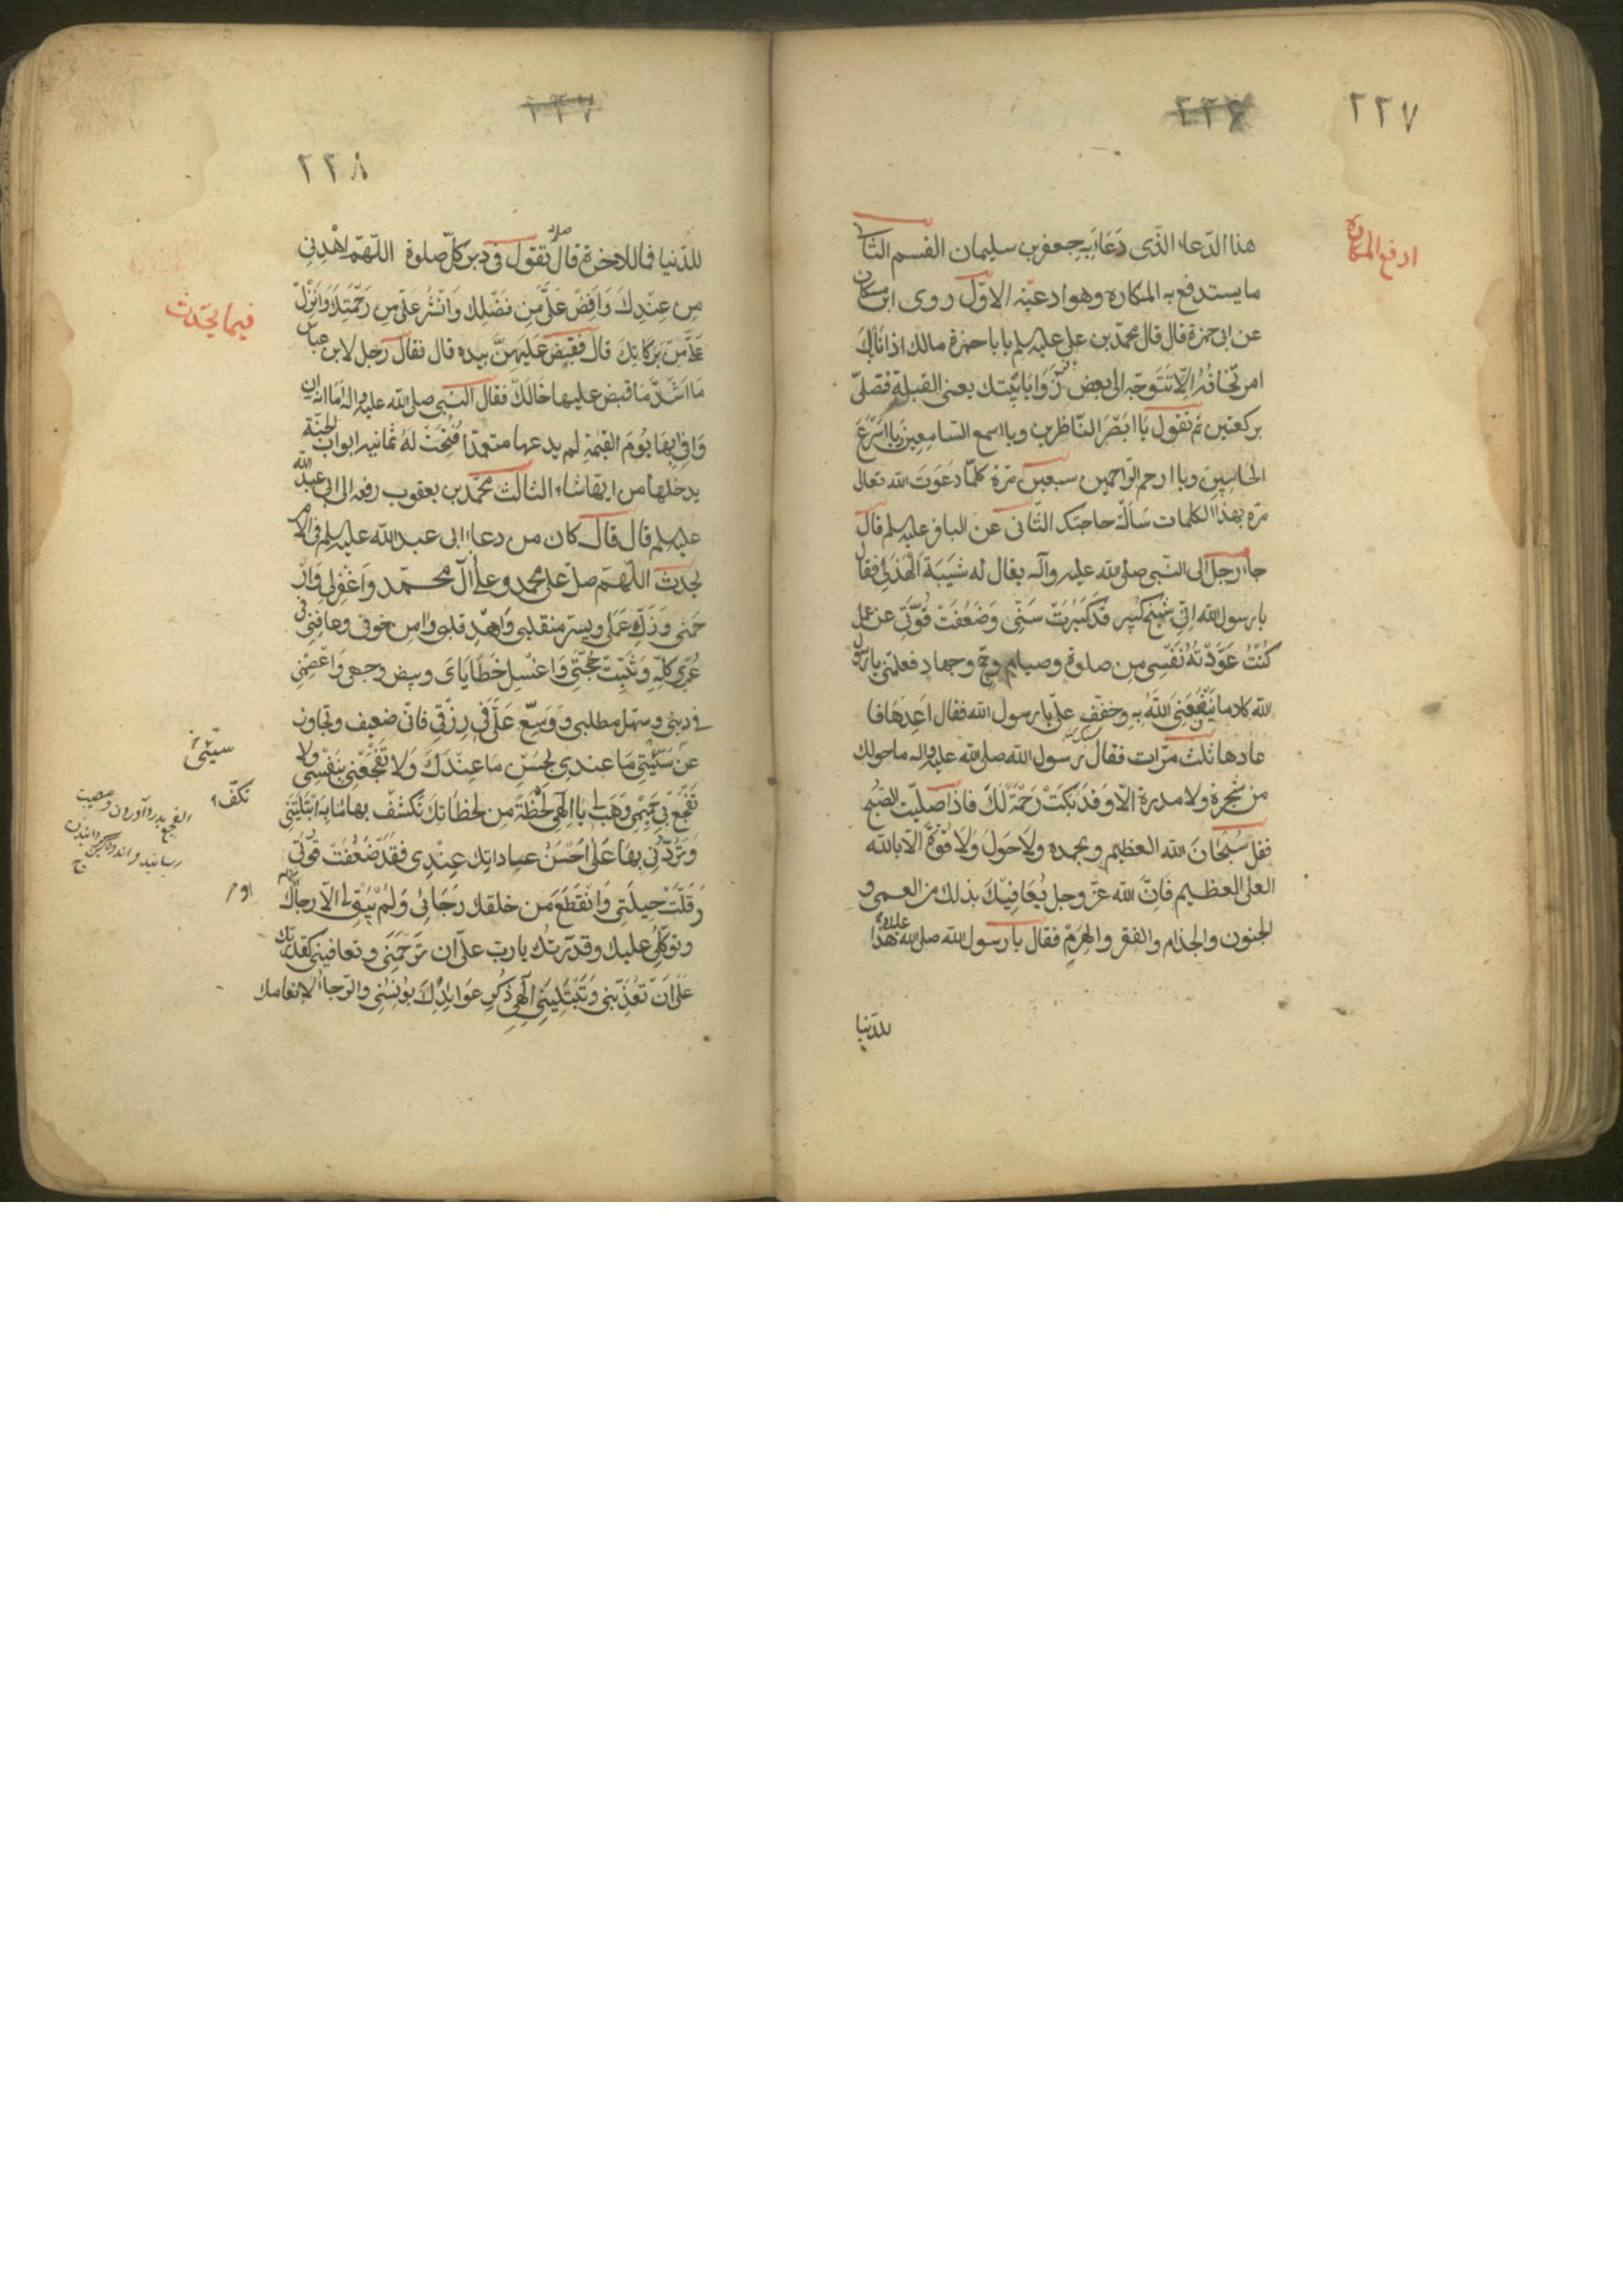 ٢٢٧
ادفع المكاره
هذا الدّعاء الذّى دَعَاء بِهِ جعفر بن سليمان القسم الثانى
ما يستدفع به المكاره وهو ادعيّة الاوّل روى ابن مسكان
عن ابى حمزة قال قال محمّد بن على عليه سلم يا با حمزة مالك اذا نابك
امر تخافُهُ الّا تتوجّه الى بعض زوايا بيتك يعنى القبلة فتصلّى
ركعتين ثم تقول يا ابصَرَ النّاظرين ويا اسمع السّامعين يا اسرَعَ
الحاسبين ويا ارحم الرّاحمين سبعين مرّة كلمّا دعَوت الله تعالى
مرّه بهذا الكلمات سَألت حاجتك الثّانى عن الباقر عليه سلم قال
جاء رجل الى النّبى صلى الله عليه وآله يقال له شَيبَة الهذلى فقال
يا رسول الله انّى شيخ كبير قد كَبُرتْ سنّى وضَعُفَتْ قُوّتى عن عمل
كُنتُ عَوّدْتهُ نَفْسِى من صلوة وصيام وحجّ وجهاد فعلّمنى يا رسول
الله كلاما يَنْفَعَنى الله بهِ وخفّف علىّ يا رسول الله فقال اعِدهَا فا
عادها ثلث مرّات فقال رسول الله صلى الله عليه واله ما حولك
من شجرة ولا مدرة الّا وقد بَكَتْ رَحْمةً لكَ فاذا صَليّتَ الصّبح
فقل سُبْحَانَ الله العظيم وبحمده ولاحَولَ وَلا قُوّةَ الّا بالله
العلى العظيم فانّ الله عزّ وجل يُعَافِيْكَ بذلك من العمى و
الجنون والجذام والفقر والهَرَم فقال يا رسول الله صلى الله عليه هذا
للدّنيا
٢٢٨
للدّنيا فما للاخرة قال تقول فى دبر كلّ صلوة اللّهمّ اهْدِنِى
مِن عِنْدِكَ وَاَفِضْ عَلىَّ مِن فَضْلِكَ وَانْشُر عَلىّ مِن رَحْمَتِكَ وَانزِلْ
عَلَىّ مِن بَرَكاتِكَ قالَ فقبَض عَليهِنَّ بيده قال فقال رجل لابن عباس
مَا اَشَدَّ مَا قبض عليها خَالكَ فقال النّبى صلى الله عليه واله امَا انّه ان
وَافى بِهَا يَومَ القيمة لم يدعها متعمدًا فُتِحَتْ لهُ ثمانيه ابواب الجنّة
يدخلها من ايّها شاء الثالث محمّد بن يعقوب رفعه الى ابى عبد الله
عليه سلم قال قال كان من دعاء ابى عبد الله عليه سلم فى الامر
يحدث اللّهمّ صلّ على محمد وعلى آل محمّد وَاغْفِرلى وَارْ
حَمْنى وَزَكِّ عَمَلى ويسّر منقلبى وَاهْدِ قلبى وامن خوفى وعافِنى فى
عُمْرى كلّهِ وَثَبِّتْ حُجّتى وَاغْسِل خَطايَاىَ وبيض وجهى وَاعْصِمْنى
فى دينى وسَهّل مطلبى وَوَسِّع عَلَىّ فى رِزْقى فانّى ضعيف وتجاوز
عن سَيّئى مَا عندى بحُسْن ما عِنْدَكَ وَلا تَفْجَعْنى بنَفْسى ولا
تفْجَع بى حَميمى وَهَب لى يا الهى لَحْظَةً مِن لحظاتكَ تكشف بها ما به ابْتَليَتَنى
وَتَرُدَّنى بهَا عَلى اَحْسَن عباداتِك عِنْدى فقَد ضَعُفَتْ قُوّتى
وَقَلّتْ حِيلَتى وَانْقَطَعَ من خلقك رَجَائى وَلمْ يَبْقَ الّا رجاؤك
وتوكّلى عليك وقدرتك يا ربّ علىّ ان تَرْحَمَنى وتعافينى كقدرتك
عَلى اَنْ تعَذّبنى وَتَبْتَلِينى الهى ذكر عَوَايدكَ يؤنِسُنى والرّجاء لانعامك
فيما يحدث
سيّئى
تكفّ